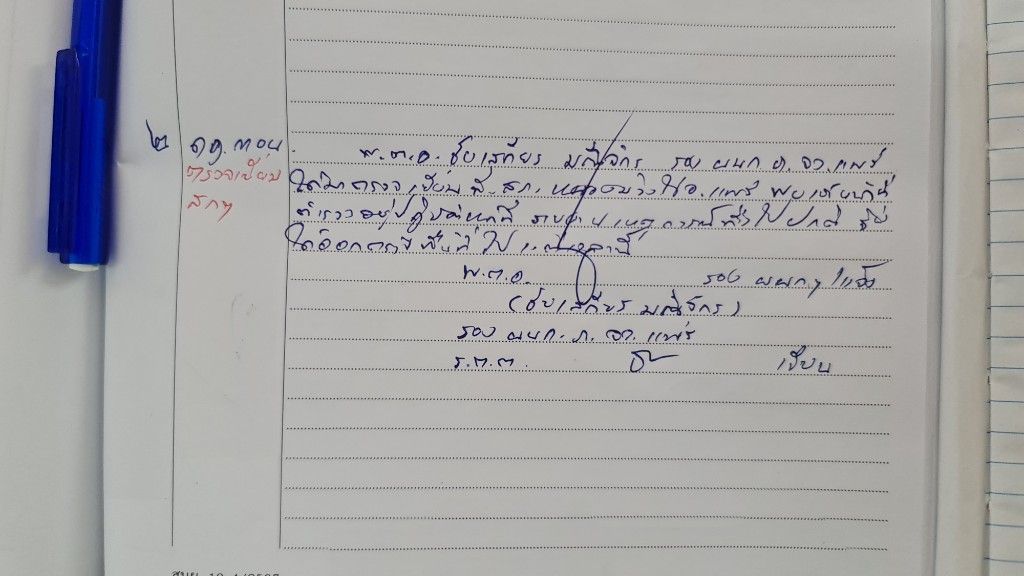 ๒
ตรวจเยี่ยม
สภฯ
พ.ต.อ. ชัยเสถียร มณีจักร รอง ผบก.ภ.จว.แพร่
ได้มาตรวจเยี่ยมที่ สภ. จ.แพร่ พบเจ้าหน้าที่
ตำรวจอยู่ปฏิบัติหน้าที่ รายงานเหตุการณ์ทั่วไปปกติ จึง
ได้ออกตรวจพื้นที่ไป แต่เวลานี้
พ.ต.อ. รอง ผบกฯ/แจ้ง
(ชัยเสถียร มณีจักร)
รอง ผบก.ภ.จว.แพร่
ร.ต.ต. เขียน